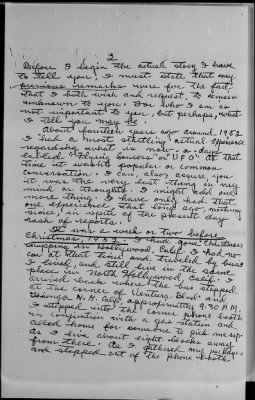 2
Before I begin the actual story I have
to tell you, I must state that my
previous remarks were for the fact
that I both wish and request to remain
unknown to you. For who I am is
not important to you, but perhaps, what
I tell you may be.
About fourteen years ago around 1952
I had a most startling actual experience
regarding what is now-a-days
called "Flying Saucers" or "UFO". At that
time it wasn't popular or common
conversation. I can also assure you
it was the very last thing in my
mind or thoughts. I might add one
more thing, I have only had that
one experience that long ago, nothing
since, in spite of the present day
rash of reports.
It was a week or two before
Christmas, 1952. I had gone Christmas
shopping in Hollywood, Calif. I had no
car at that time and traveled by bus.
I lived, and still live in the same
place in North Hollywood, Calif. I
arrived back where the bus stopped
at the corner of Ventura Blvd. and
N.H. Calif. approximately 9:30 P.M.
I stepped into the corner phone booth
in conjunction with a gas station and
called home for someone to pick me up
as I live about eight blocks away
from there. As I gathered my packages
and stepped out of the phone booth